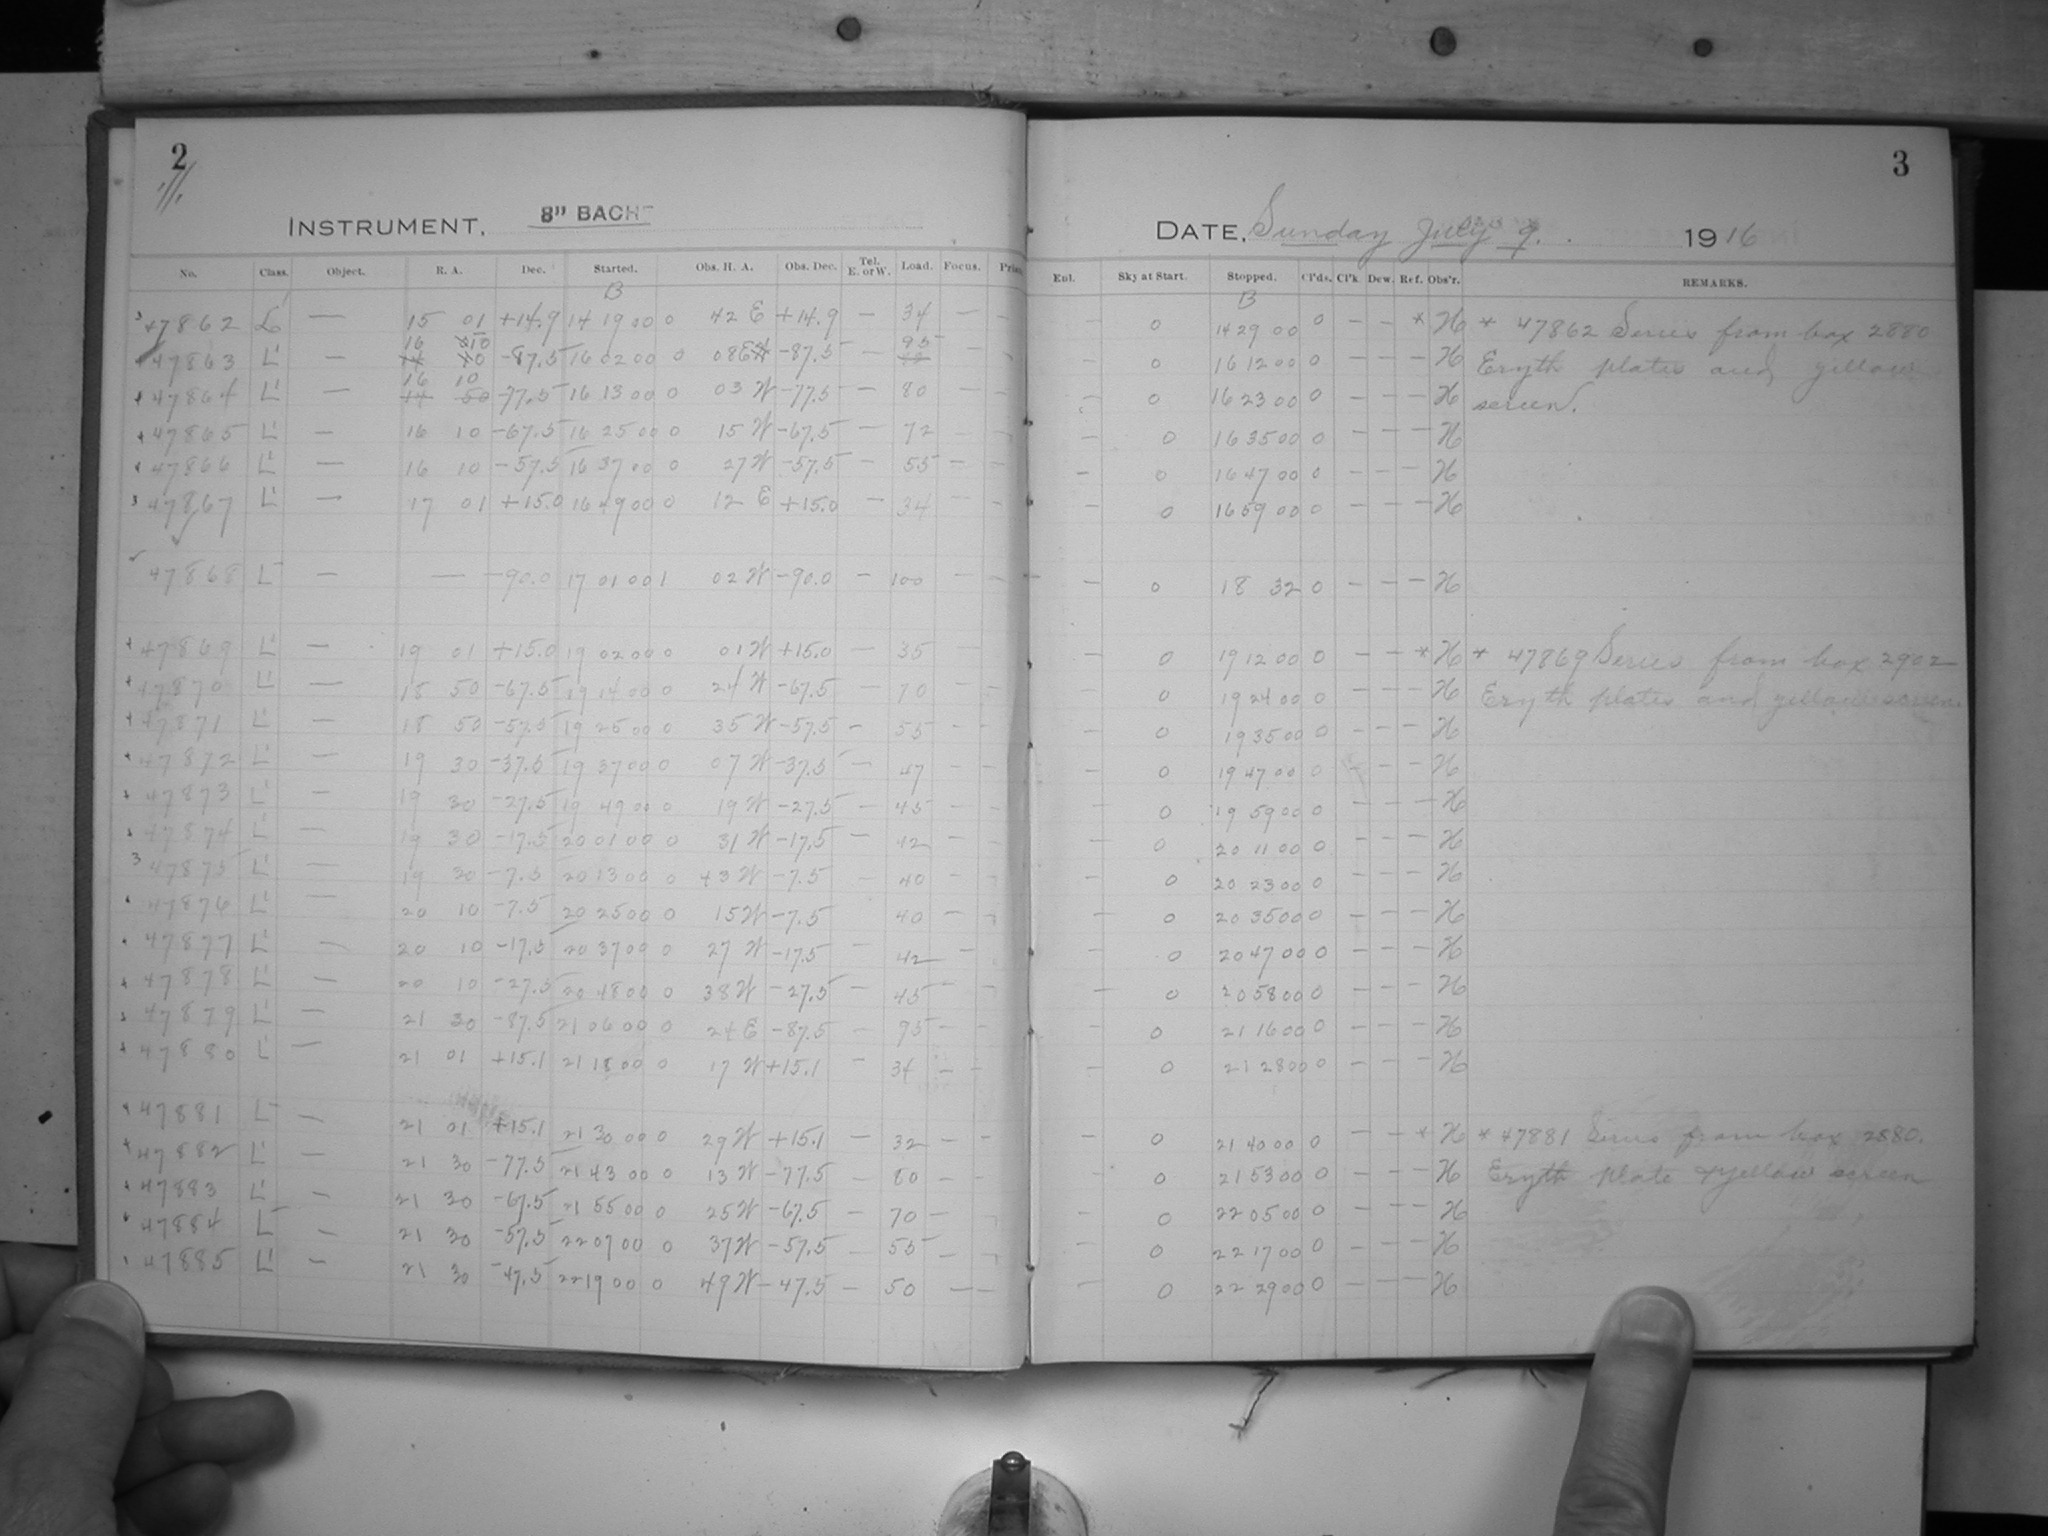 2
INSTRUMENT, 8" BACHE
No. Class. Object. R. A. Dec. Started. Obs. H. A. Obs. Dec. Tel. E. or W. Load. Focus.
B
47862 L' — 15 01 +14.9 14 19 00 0 42 E +14.9 — 34 — —
47863 L' — 16 10 -87.5 16 02 00 0 08 E -87.5 — 95 — —
47864 L' — 16 10 -77.5 16 13 00 0 03 W -77.5 — 80 — —
47865 L' — 16 10 -67.5 16 25 00 0 15 W -67.5 — 72 — —
47866 L' — 16 10 -57.5 16 37 00 0 27 W -57.5 — 55 — —
47867 L' — 17 01 +15.0 16 49 00 0 12 E +15.0 — 34 — —
47868 L — — -90.0 17 01 00 1 02 W -90.0 — 100 — —
47869 L' — 19 01 +15.0 19 02 00 0 01 W +15.0 — 35 —
47870 L' — 18 50 -67.5 19 14 00 0 24 W -67.5 — 70 — —
47871 L' — 18 50 -57.5 19 25 00 0 35 W -57.5 — 55 — —
47872 L' — 19 30 -37.5 19 37 00 0 07 W -37.5 — 47 — —
47873 L' — 19 30 -27.5 19 49 00 0 19 W -27.5 — 45 — —
47874 L' — 19 30 -17.5 20 01 00 0 31 W -17.5 — 42 — —
47875 L' — 19 30 -7.5 20 13 00 0 43 W -7.5 — 40 — —
47876 L' — 20 10 -7.5 20 25 00 0 15 W -7.5 40 — —
47877 L' — 20 10 -17.5 20 37 00 0 27 W -17.5 — 42 —
47878 L' — 20 10 -27.5 20 48 00 0 38 W -27.5 — 45 — —
47879 L' — 21 30 -87.5 21 06 00 0 24 E -87.5 — 95 — —
47880 L' — 21 01 +15.1 21 18 00 0 17 W +15.1 — 34 — —
47881 L — 21 01 +15.1 21 30 00 0 29 W +15.1 — 32 — —
47882 L' — 21 30 -77.5 21 43 00 0 13 W -77.5 — 80 — —
47883 L' — 21 30 -67.5 21 55 00 0 25 W -67.5 — 70 —
47884 L — 21 30 -57.5 22 07 00 0 37 W -57.5 — 55 —
47885 L' — 21 30 -47.5 22 19 00 0 49 W -47.5 — 50 — —
3
DATE, Sunday July 9. 1916
Enl. Sky at Start. Stopped. Cl'ds. Cl'k Dew. Ref. Obs'r. REMARKS.
B
0 14 29 00 0 — — * H * 47862 Series from box 2880
— 0 16 12 00 0 — — — H Eryth plates and yellow
— 0 16 23 00 0 — — — H screen.
— 0 16 35 00 0 — — — H
— 0 16 47 00 0 — — — H
— 0 16 59 00 0 — — — H
— 0 18 32 0 — — — H
0 19 12 00 0 — — * H * 47869 Series from box 2902
— 0 19 24 00 0 — — — H Eryth plates and yellow screen.
— 0 19 35 00 0 — — — H
— 0 19 47 00 0 — — — H
— 0 19 59 00 0 — — — H
— 0 20 11 00 0 — — — H
0 20 23 00 0 — — — H
— 0 20 35 00 0 — — — H
0 20 47 00 0 — — — H
— 0 20 58 00 0 — — — H
0 21 16 00 0 — — — H
— 0 21 28 00 0 — — — H
0 21 40 00 0 — — * H * 47881 Series from box 2880.
— 0 21 53 00 0 — — — H Eryth plate & yellow screen
— 0 22 05 00 0 — — — H
— 0 22 17 00 0 — — — H
— 0 22 29 00 0 — — — H